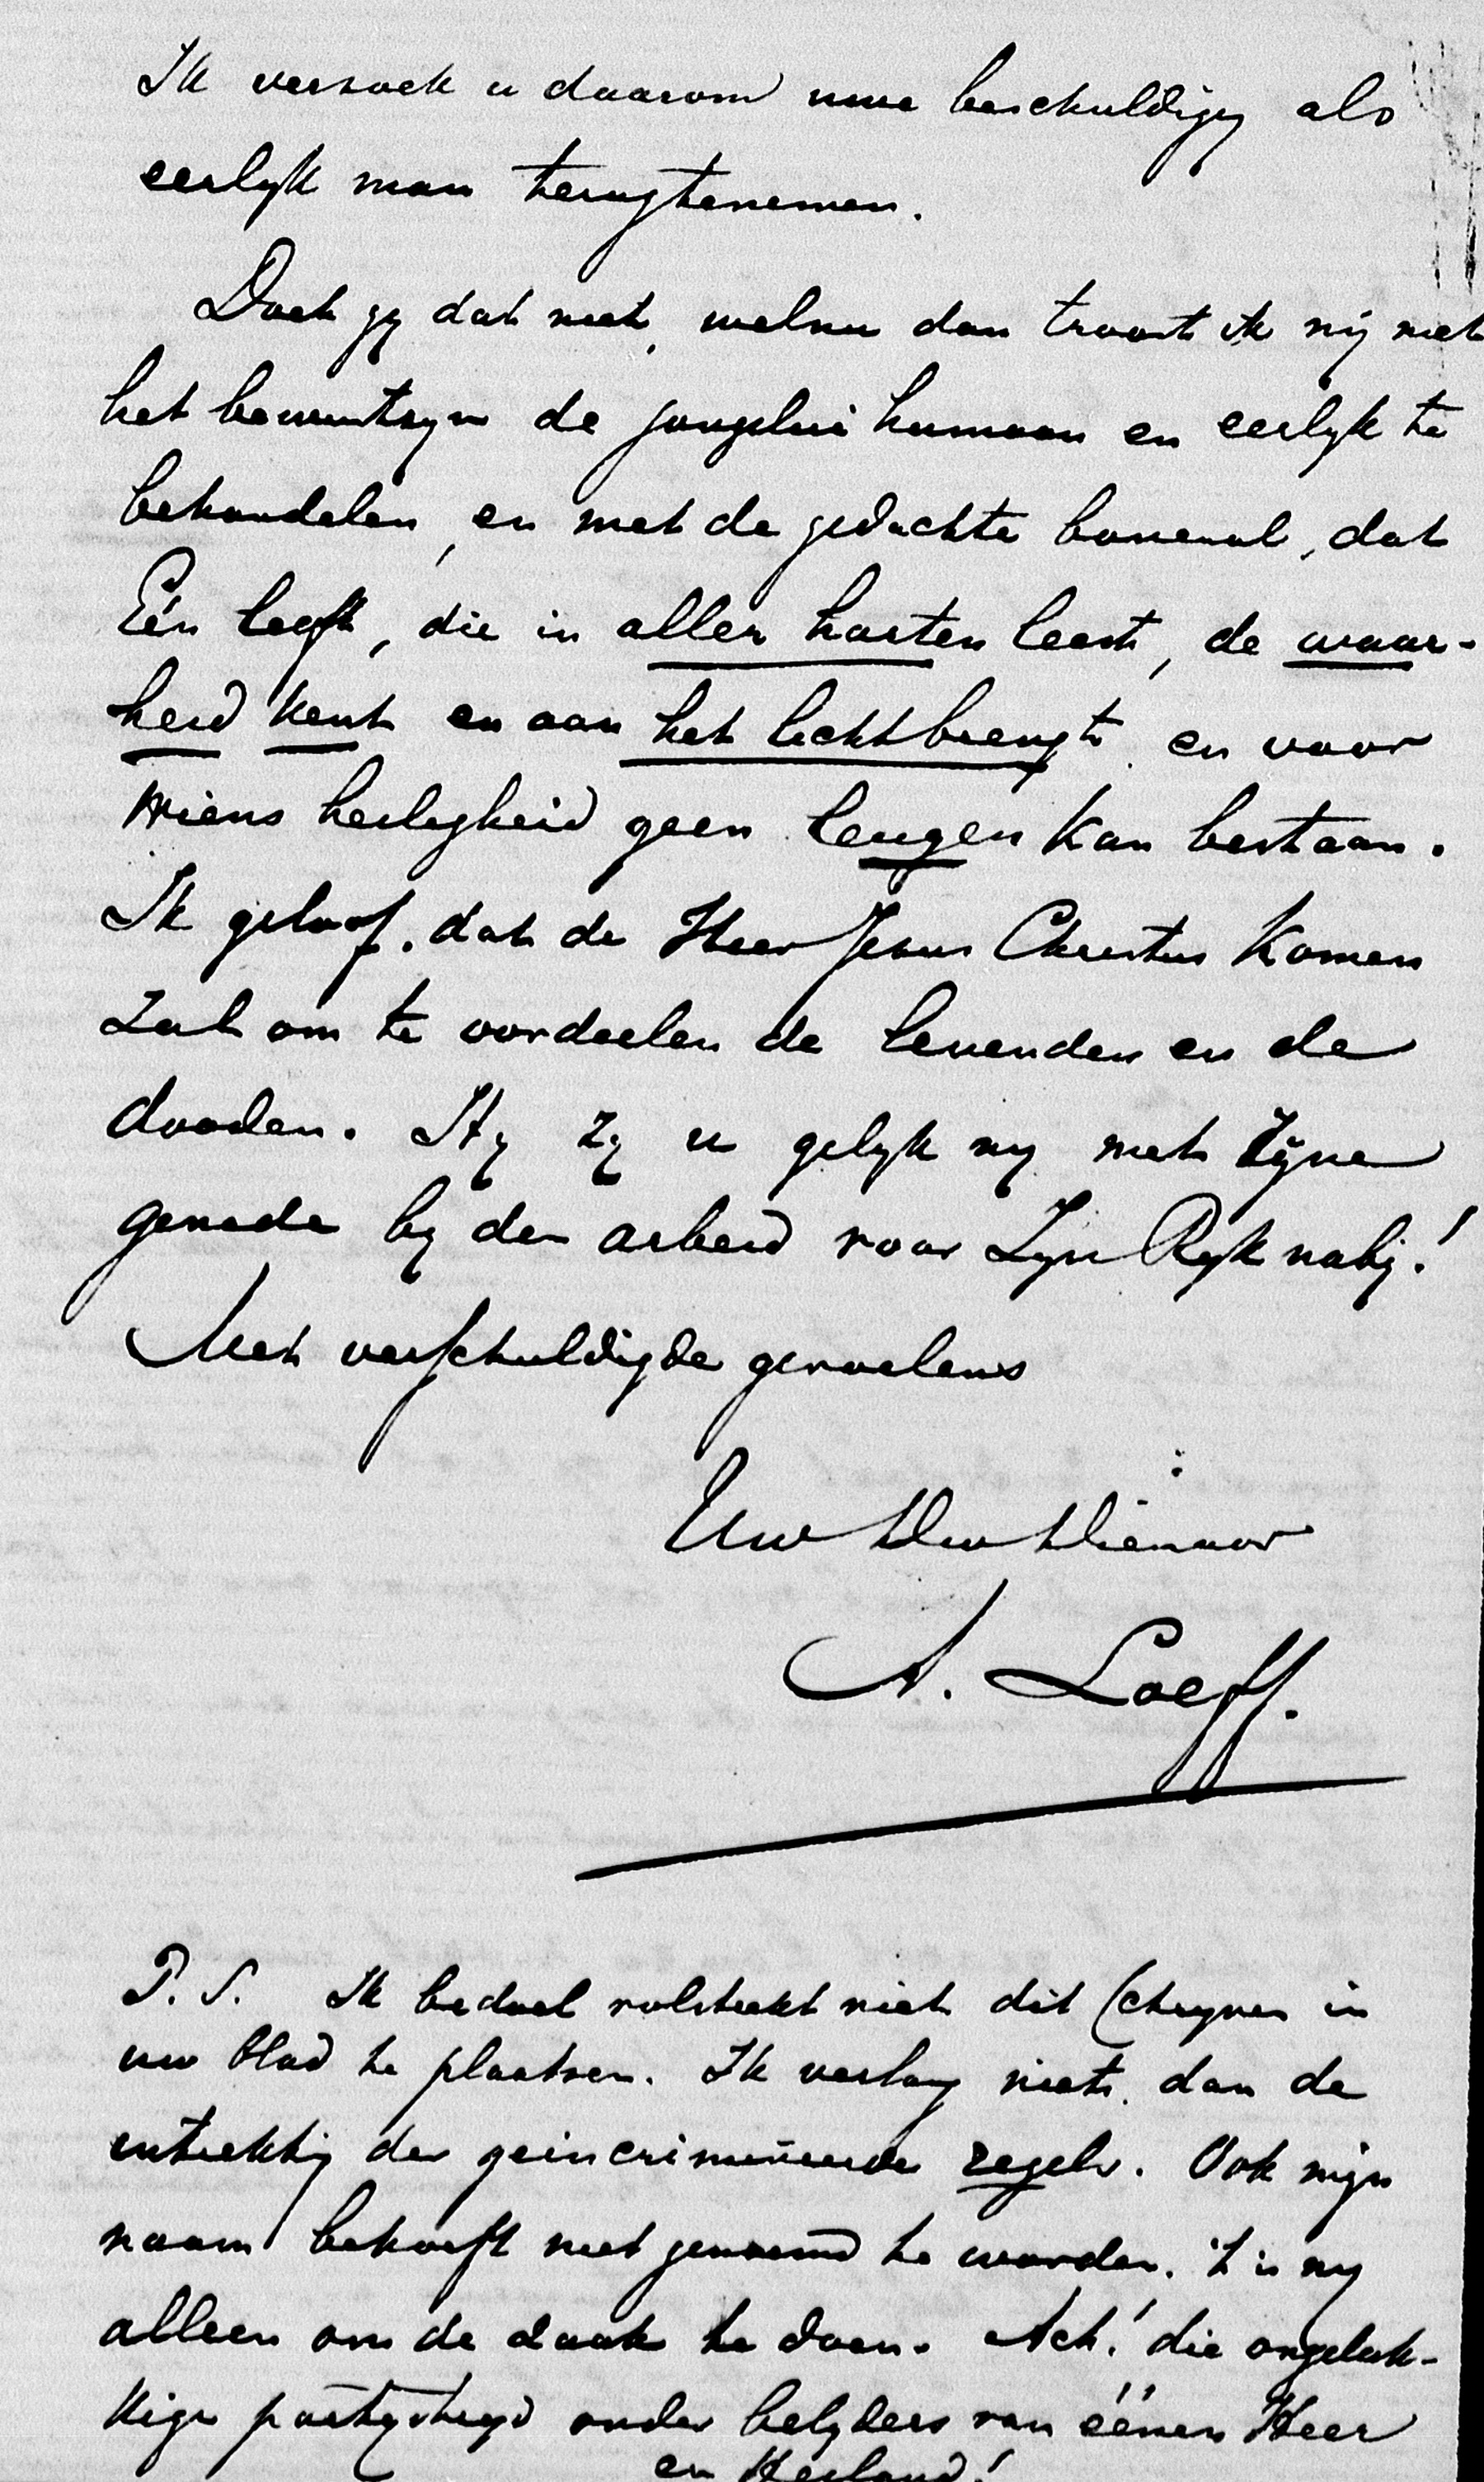 Ik verzoek u daarom uwe beschuldiging als
eerlyk man terugtenemen.
Doet gy dat niet, welnu dan troost ik mij met
het bewustzyn de jongelui humaan en eerlyk te
behandelen, en met de gedachte bovenal, dat
Eén leeft, die in aller harten leest, de waar-
heid kent en aan het licht brengt en voor
Wiens heiligheid geen leugen kan bestaan.
Ik geloof, dat de Heer Jezus Christus komen
zal om te oordeelen de levenden en de
dooden. Hy zy u gelyk my met Zijne
genade by den arbeid voor Zyn Ryk nabij!
Met verschuldigde gevoelens
Uw Dw Dienaar
A. Loeff.
P. S. Ik bedoel volstrekt niet dit schryven in
uw blad te plaatsen. Ik verlang niets, dan de
intrekking der geincrimineerde regels. Ook mijn
naam behoeft niet genoemd te worden. 't is my
alleen om de zaak te doen. Ach! die ongeluk-
kige partystryd onder belyders van éénen Heer
en Heiland!